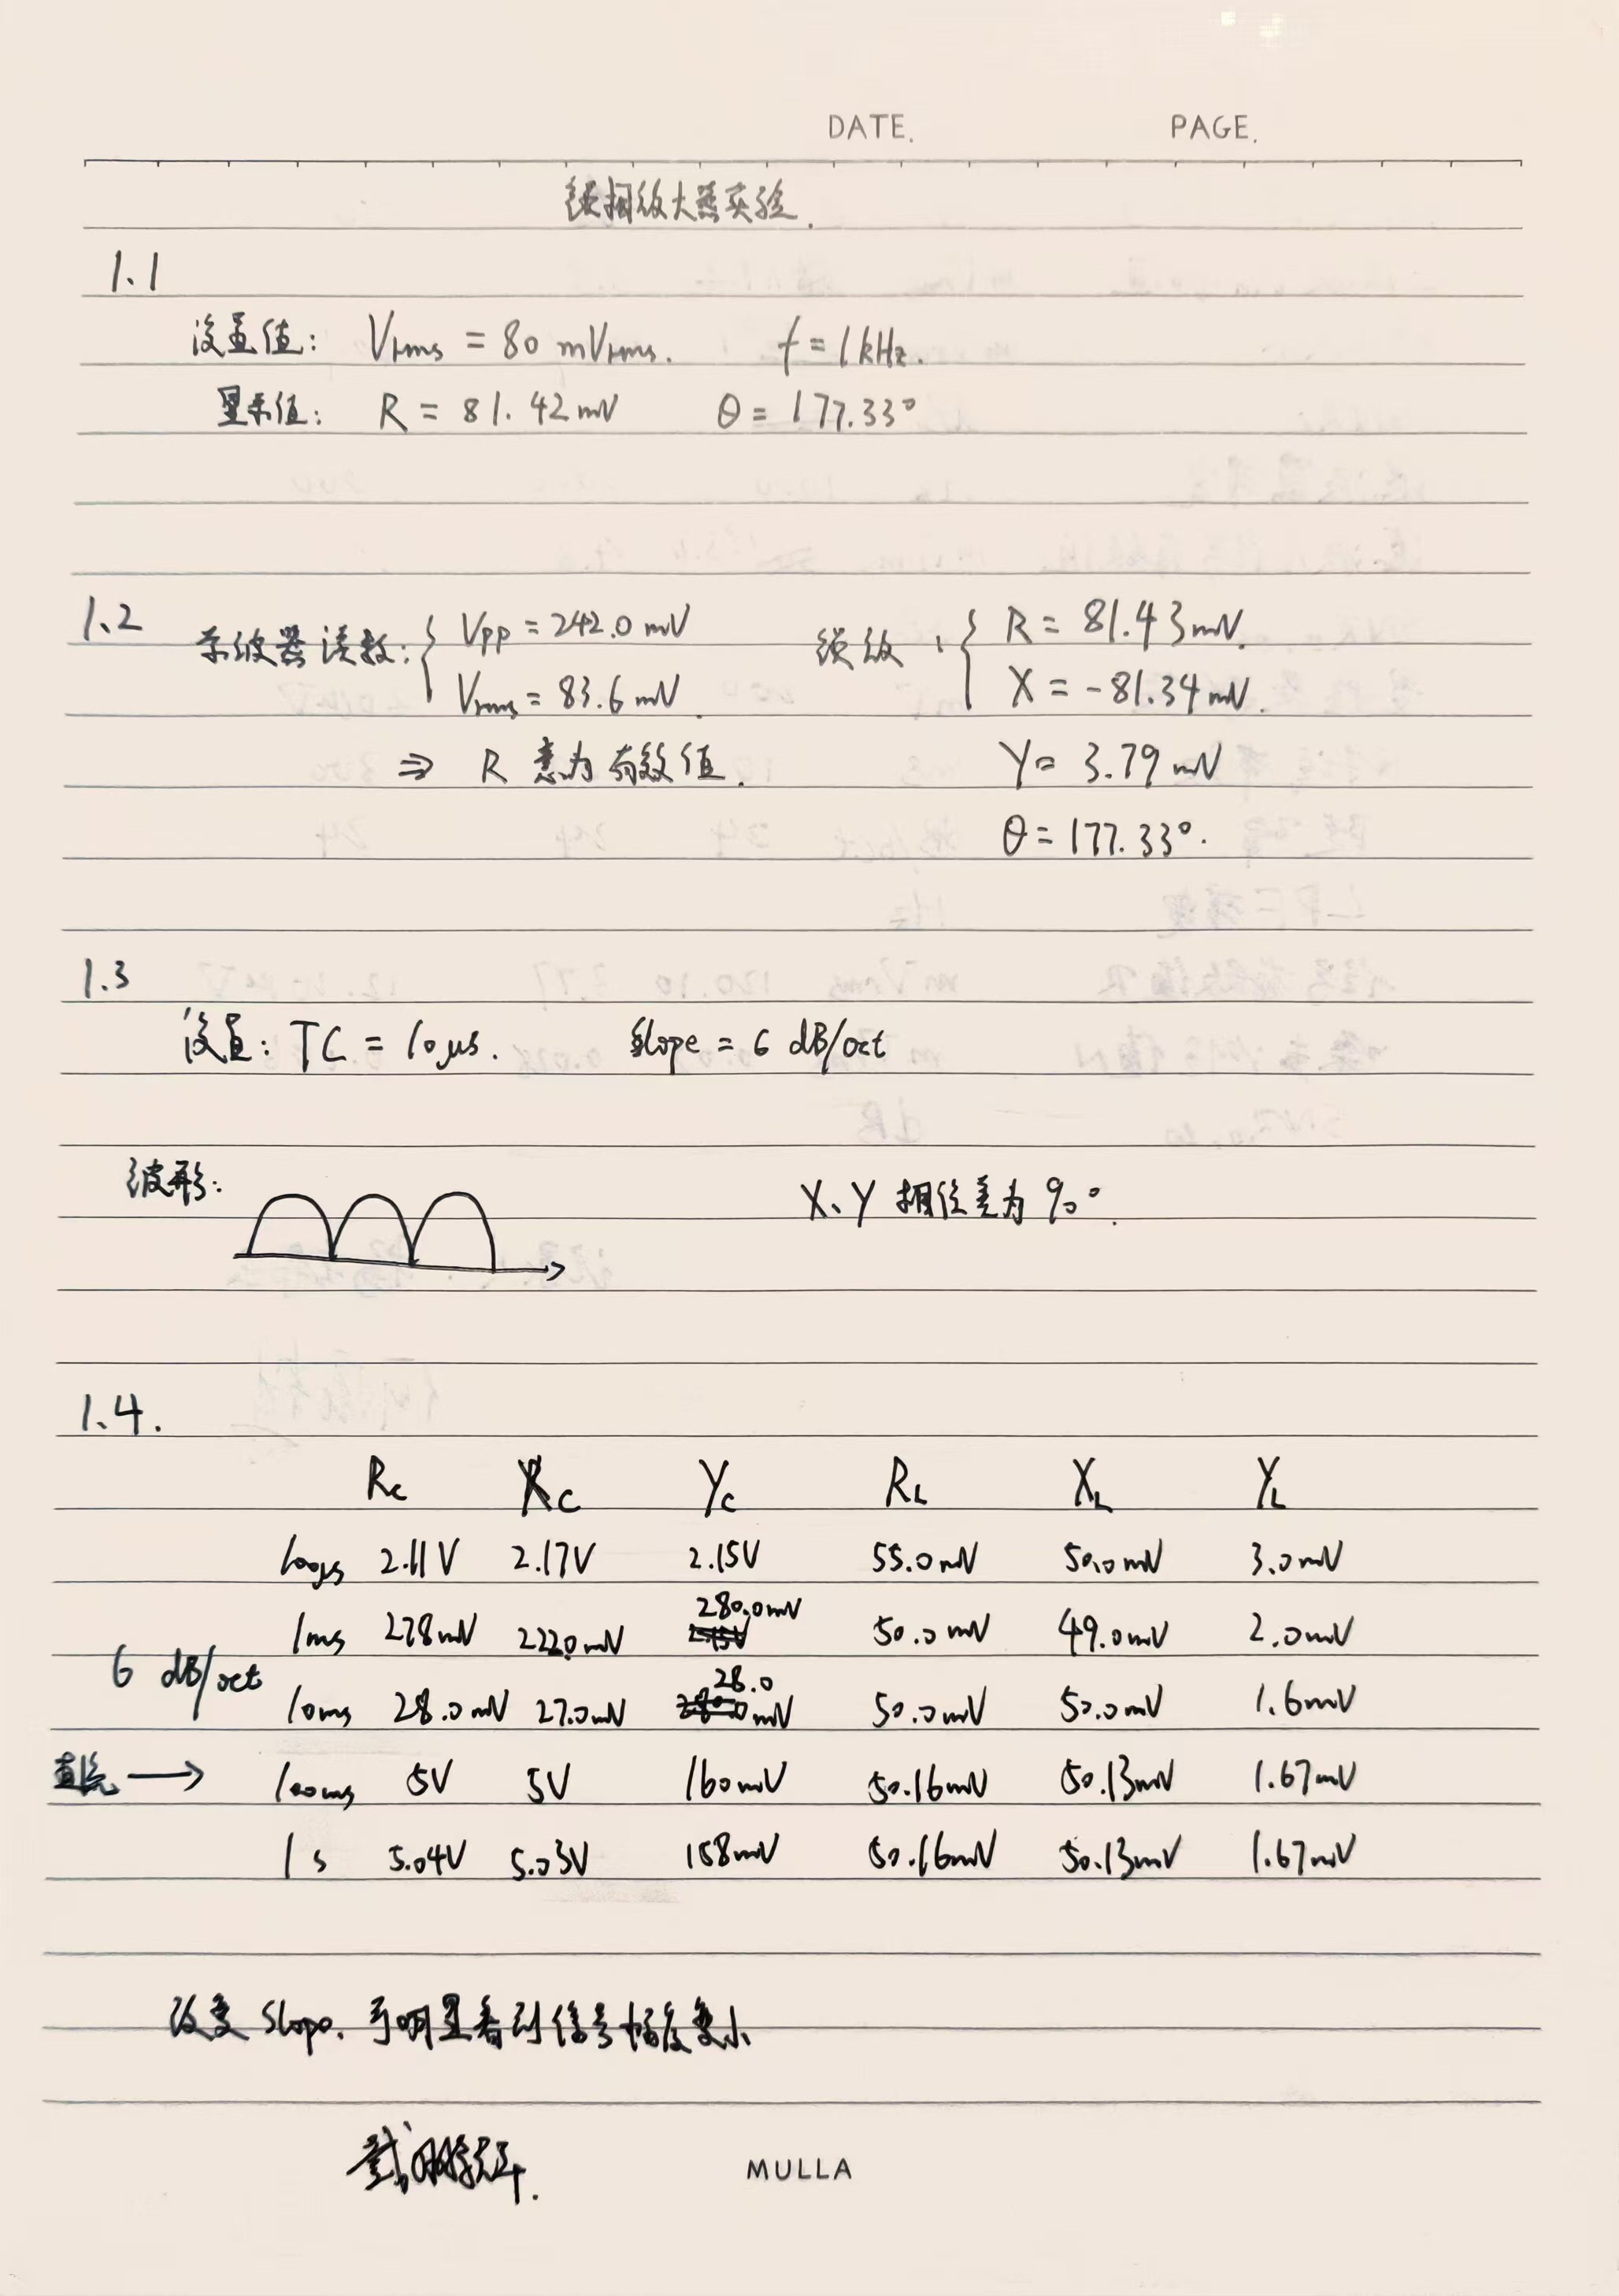 DATE. PAGE.
锁相放大器实验.
1.1
设置值: Vrms = 80 mVrms. f = 1kHz.
显示值: R = 81.42mV θ = 177.33°
1.2 示波器读数: { Vpp = 242.0 mV 锁放: { R = 81.43mV.
Vrms = 83.6 mV. X = -81.34mV.
⇒ R 意为有效值. Y = 3.79 mV
θ = 177.33°.
1.3
设置: TC = 10μs. Slope = 6 dB/oct
波形: X、Y 相位差为 90°.
1.4.
Rc Xc Yc RL XL YL
100μs 2.11V 2.17V 2.15V 55.0mV 50.0mV 3.0mV
1ms 278mV 222.0mV 280.0mV 50.0mV 49.0mV 2.0mV
6 dB/oct
10ms 28.0mV 27.0mV 28.0mV 50.0mV 50.0mV 1.6mV
直流 → 100ms 5V 5V 160mV 50.16mV 50.13mV 1.67mV
1s 5.04V 5.03V 158mV 50.16mV 50.13mV 1.67mV
改变 Slope. 可明显看到信号幅度变小
MULLA